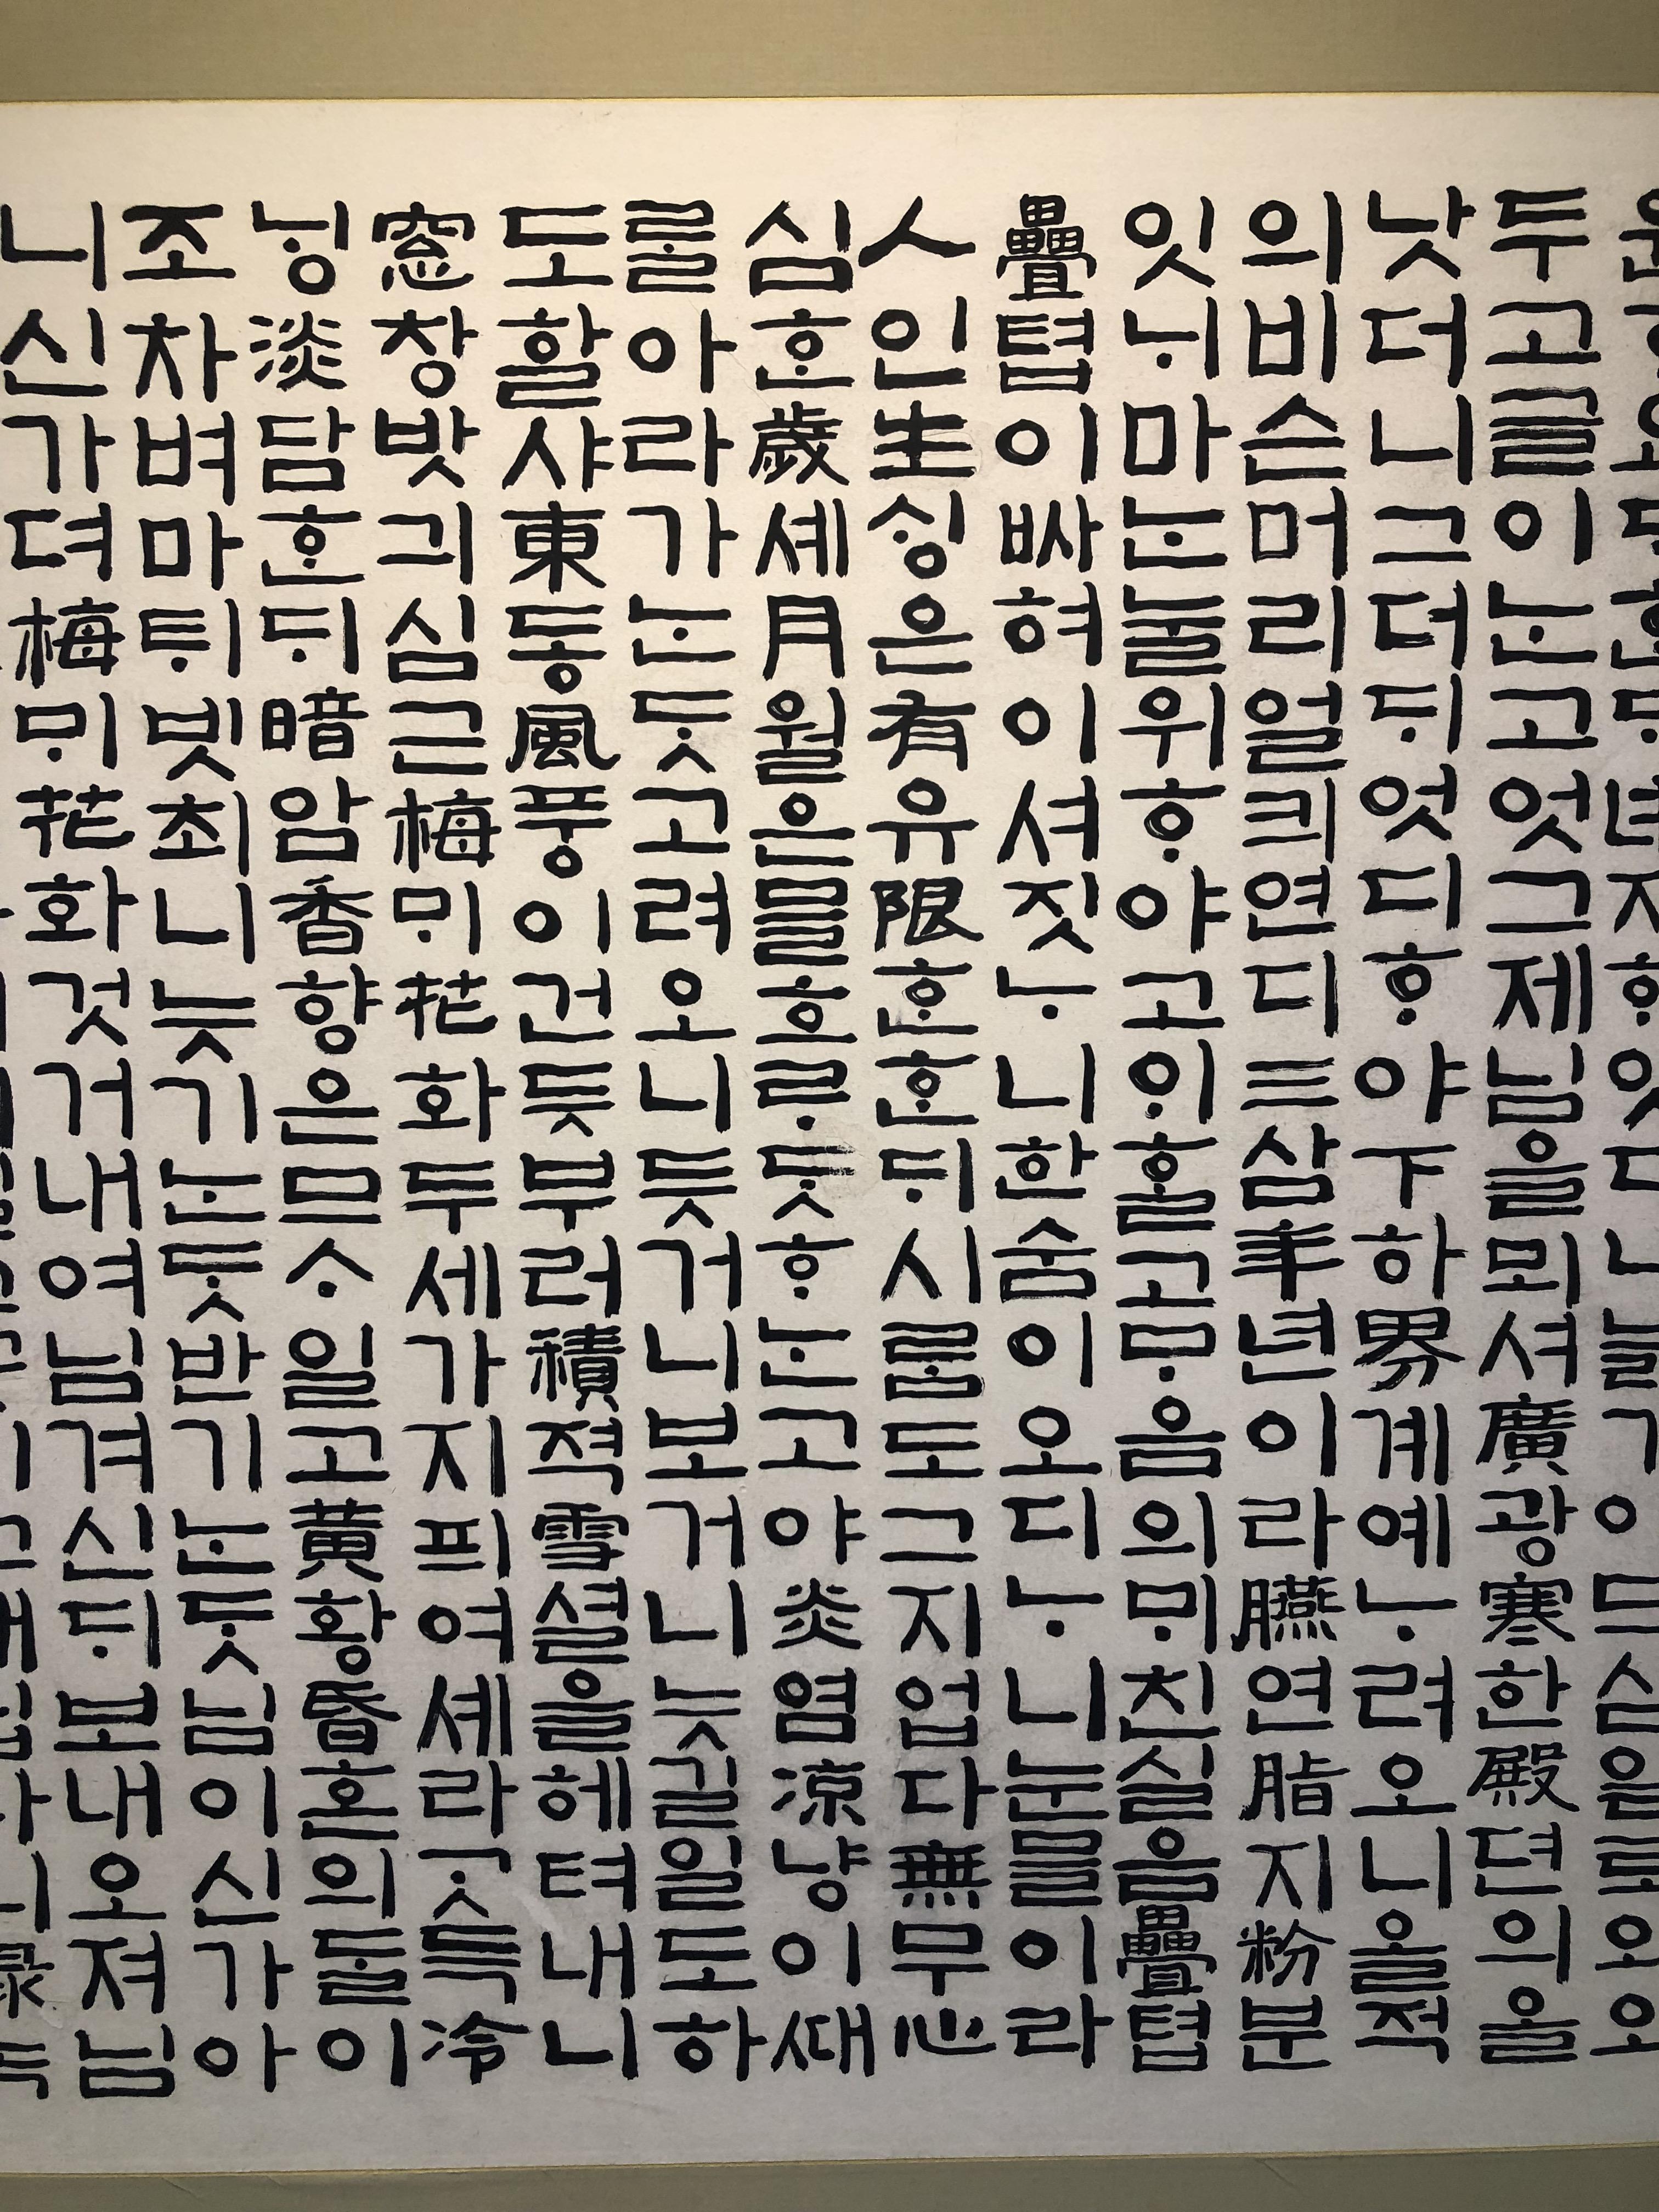 두고글이ᄂᆞᆫ고엇그제님을뫼셔廣광寒한殿뎐의올
낫더니그더ᄃᆡ엇디ᄒᆞ야下하界계예ᄂᆞ려오니올적
의비슨머리얼킈연디三삼年년이라臙연脂지粉분
잇ᄂᆡ마ᄂᆞᆫ눌위ᄒᆞ야고ᄋᆡᄒᆞᆯ고ᄆᆞ음의ᄆᆡ친실음疊텹
疊텹이ᄡᅡ혀이셔짓ᄂᆞ니한숨이오디ᄂᆞ니눈믈이라
人인生ᄉᆡᆼ은有유限ᄒᆞᆫᄒᆞᆫᄃᆡ시ᄅᆞᆷ도그지업다無무心
심ᄒᆞᆫ歲셰月월은믈흐ᄅᆞᄃᆞᆺᄒᆞᄂᆞᆫ고야炎염凉냥이ᄯᅢ
ᄅᆞᆯ아라가ᄂᆞᆫᄃᆞᆺ고려오니듯거니보거니늣길일도하
도할샤東동風풍이건듯부러積젹雪셜을헤텨내니
窓창밧긔심근梅ᄆᆡ花화두세가지픠여셰라ᄀᆞᆺ득冷
ᄂᆡᆼ淡담ᄒᆞᆫᄃᆡ暗암香향은므ᄉᆞ일고黃황昏혼의ᄃᆞᆯ이
조차벼마ᄐᆡ빗최니늣기ᄂᆞᆫᄃᆞᆺ반기ᄂᆞᆫᄃᆞᆺ님이신가아
니신가뎌梅ᄆᆡ花화것거내여님겨신ᄃᆡ보내오져님